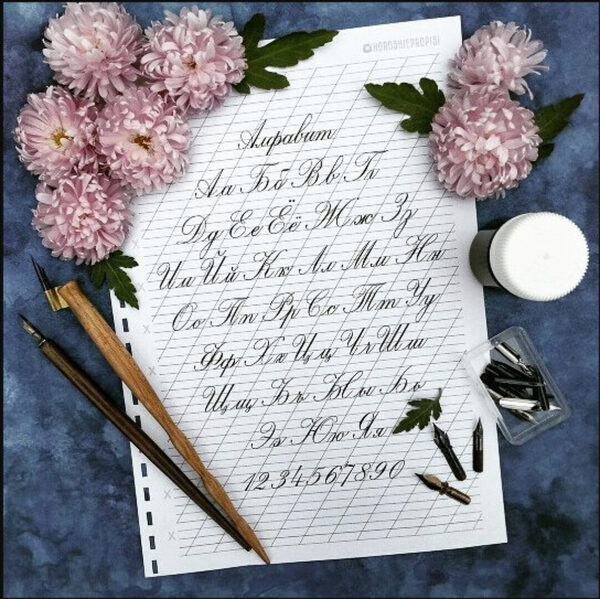 HOROSHIEPROPISI
Алфавит
Аа Бб Вв Гг
Дд Ее Ёё Жж Зз
Ии Йй Кк Лл Мм Нн
Оо Пп Рр Сс Тт Уу
Фф Хх Цц Чч Шш
Щщ Ъъ Ыы Ьь
Ээ Юю Яя
1234567890